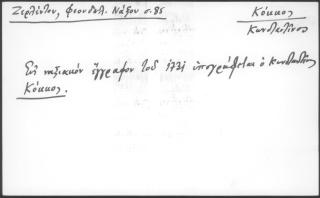 Ζερλέντου, Φεουδαλ. Νάξου σ. 85
Κόκκος
Κωνσταντῖνος
Εἰς ναξιακὸν ἔγγραφον τοῦ 1731 ὑπογράφεται ὁ Κωνσταντῖνος
Κόκκος.